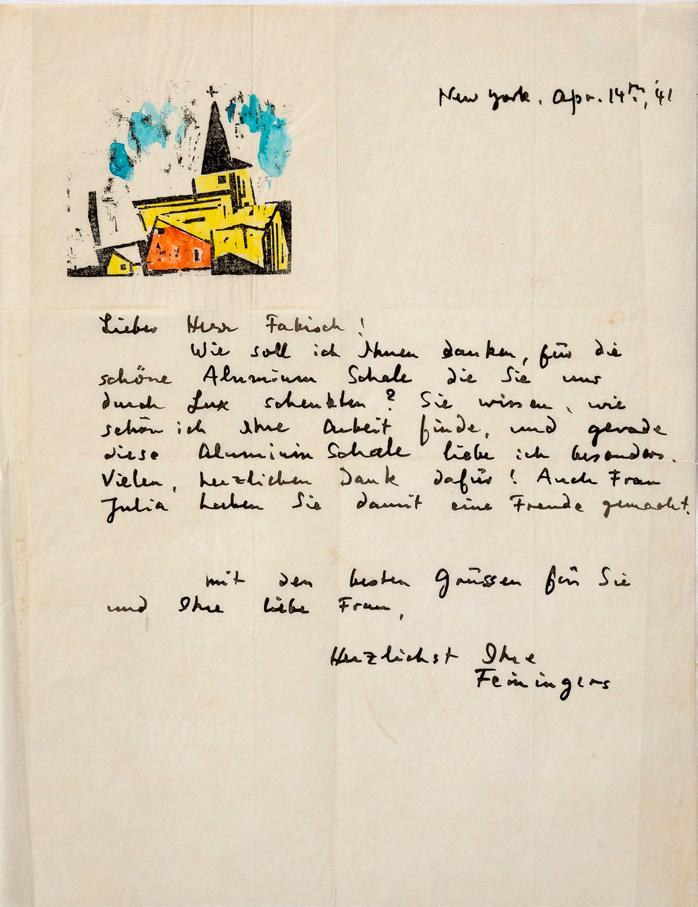 New York. Apr. 14th, '41
Lieber Herr Fabisch!
Wie soll ich Ihnen danken, für die
schöne Aluminium Schale die Sie uns
durch Lux schenkten? Sie wissen, wie
schön ich Ihre Arbeit finde, und gerade
diese Aluminium Schale liebe ich besonders.
Vielen, herzlichen Dank dafür! Auch Frau
Julia haben Sie damit eine Freude gemacht.
mit den besten Grüssen für Sie
und Ihre liebe Frau,
Herzlichst Ihre
Feiningers